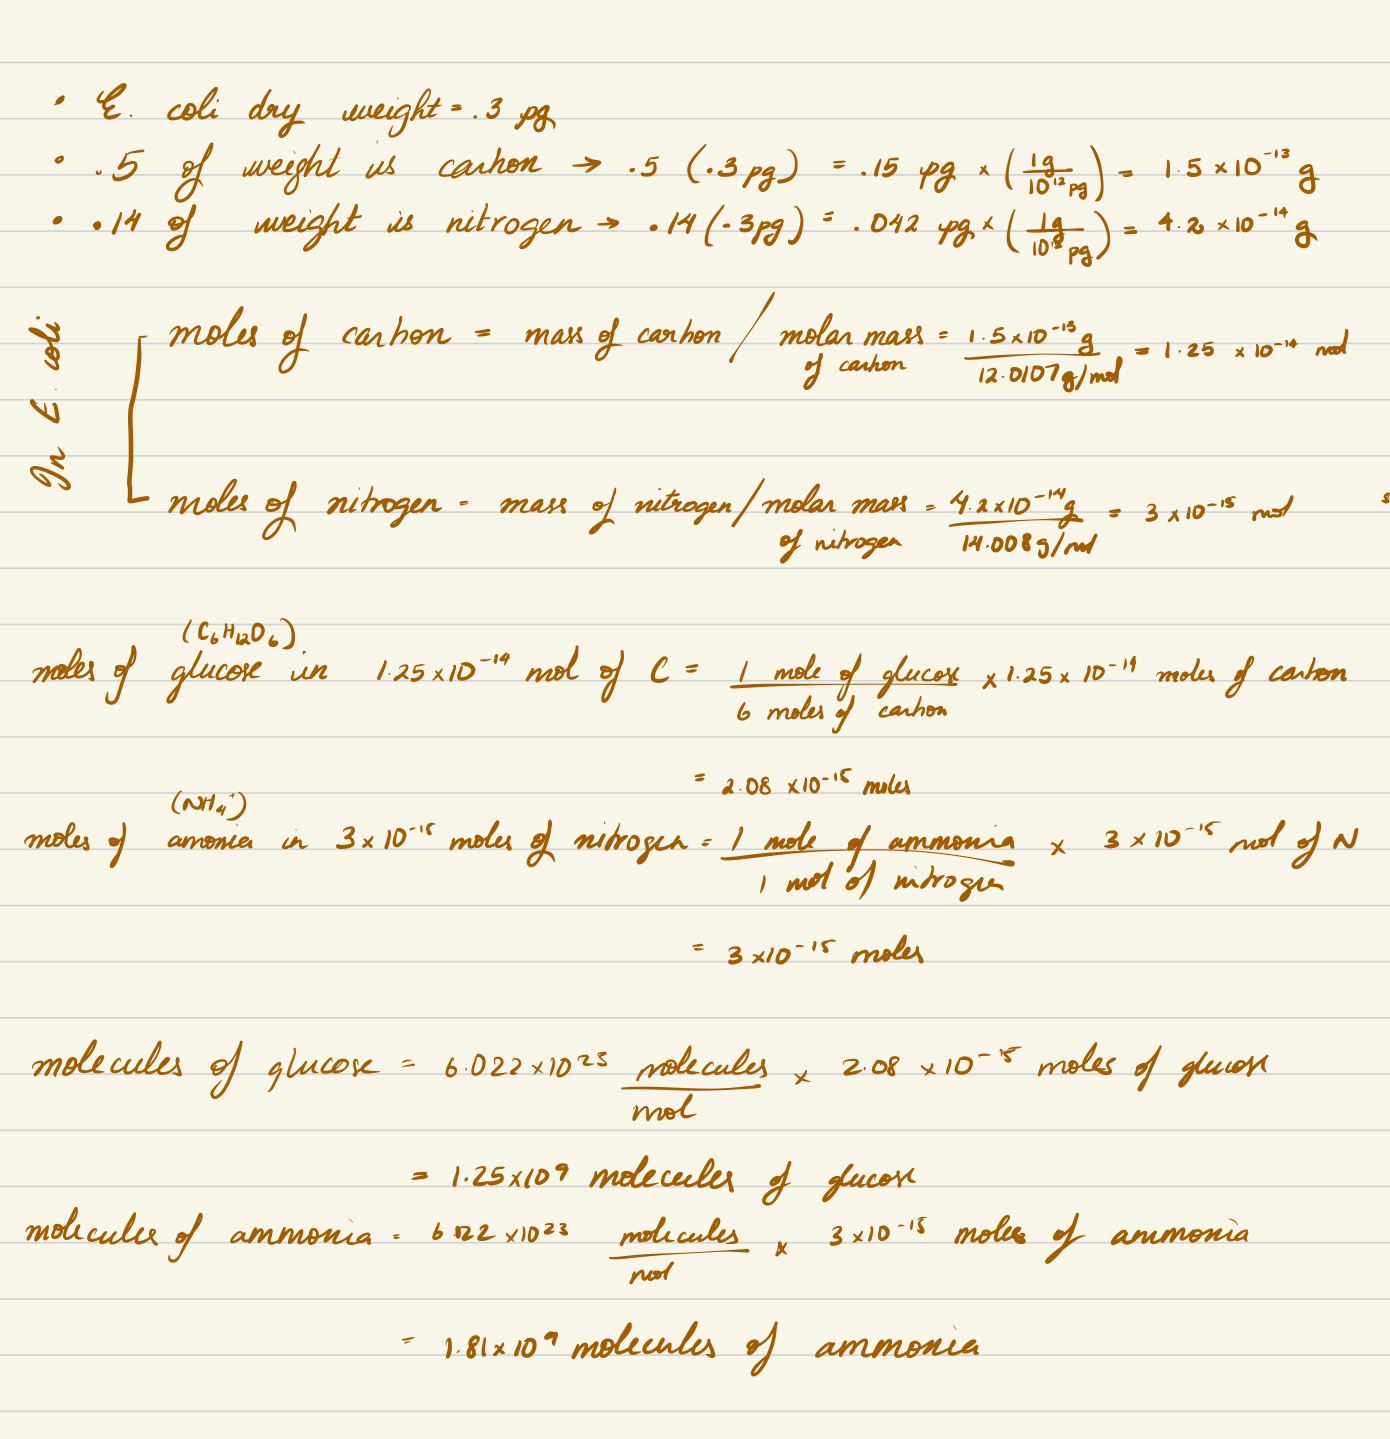 • E. coli dry weight = .3 pg
• .5 of weight is carbon → .5 (.3 pg) = .15 pg × (1g / 10¹² pg) = 1.5 × 10⁻¹³ g
• .14 of weight is nitrogen → .14 (.3pg) = .042 pg × (1g / 10¹² pg) = 4.2 × 10⁻¹⁴ g
In E. coli
moles of carbon = mass of carbon / molar mass of carbon = 1.5 × 10⁻¹³ g / 12.0107 g/mol = 1.25 × 10⁻¹⁴ mol
moles of nitrogen = mass of nitrogen / molar mass of nitrogen = 4.2 × 10⁻¹⁴ g / 14.008 g/mol = 3 × 10⁻¹⁵ mol
(C₆H₁₂O₆)
moles of glucose in 1.25 × 10⁻¹⁴ mol of C = 1 mole of glucose / 6 moles of carbon × 1.25 × 10⁻¹⁴ moles of carbon
= 2.08 × 10⁻¹⁵ moles
(NH₄⁺)
moles of amonia in 3 × 10⁻¹⁵ moles of nitrogen = 1 mole of ammonia / 1 mol of nitrogen × 3 × 10⁻¹⁵ mol of N
= 3 × 10⁻¹⁵ moles
molecules of glucose = 6.022 × 10²³ molecules / mol × 2.08 × 10⁻¹⁵ moles of glucose
= 1.25 × 10⁹ molecules of glucose
molecules of ammonia = 6.022 × 10²³ molecules / mol × 3 × 10⁻¹⁵ moles of ammonia
= 1.81 × 10⁹ molecules of ammonia